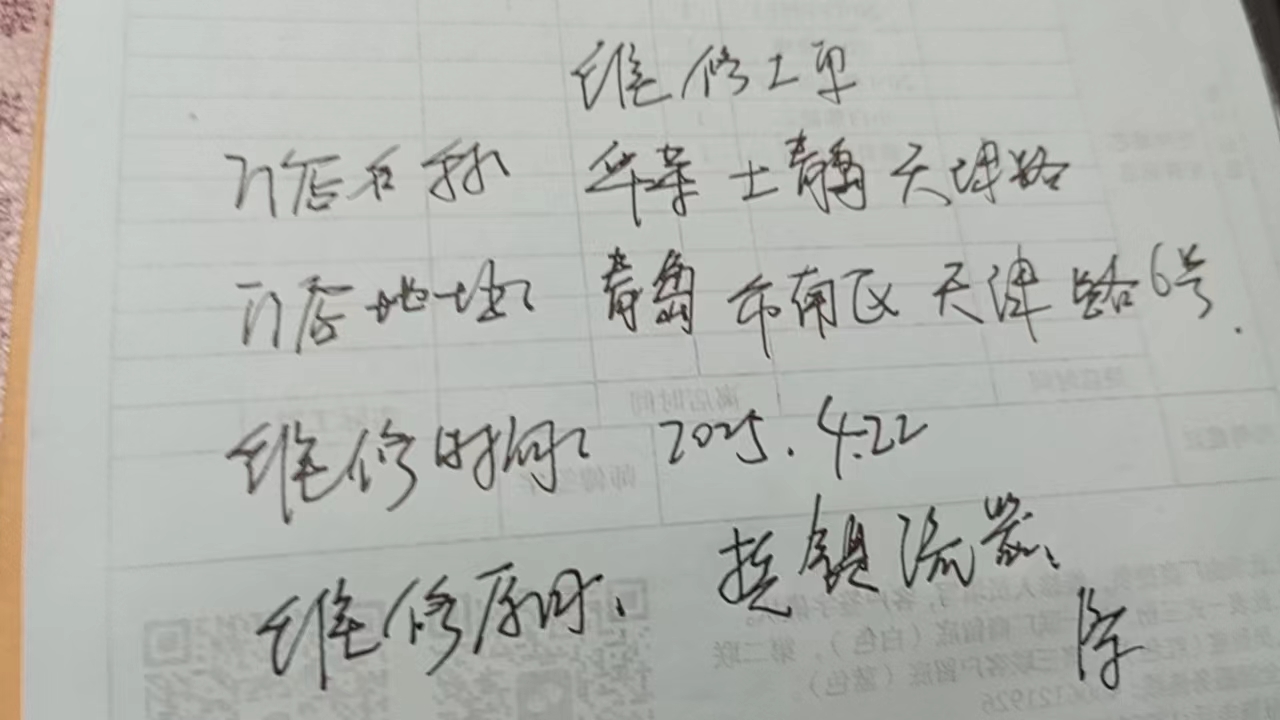 维修工单
门店名称 华莱士青岛天津路
门店地址: 青岛市南区天津路6号.
维修时间: 2025.4.22
维修原因: 换镇流器、
陈